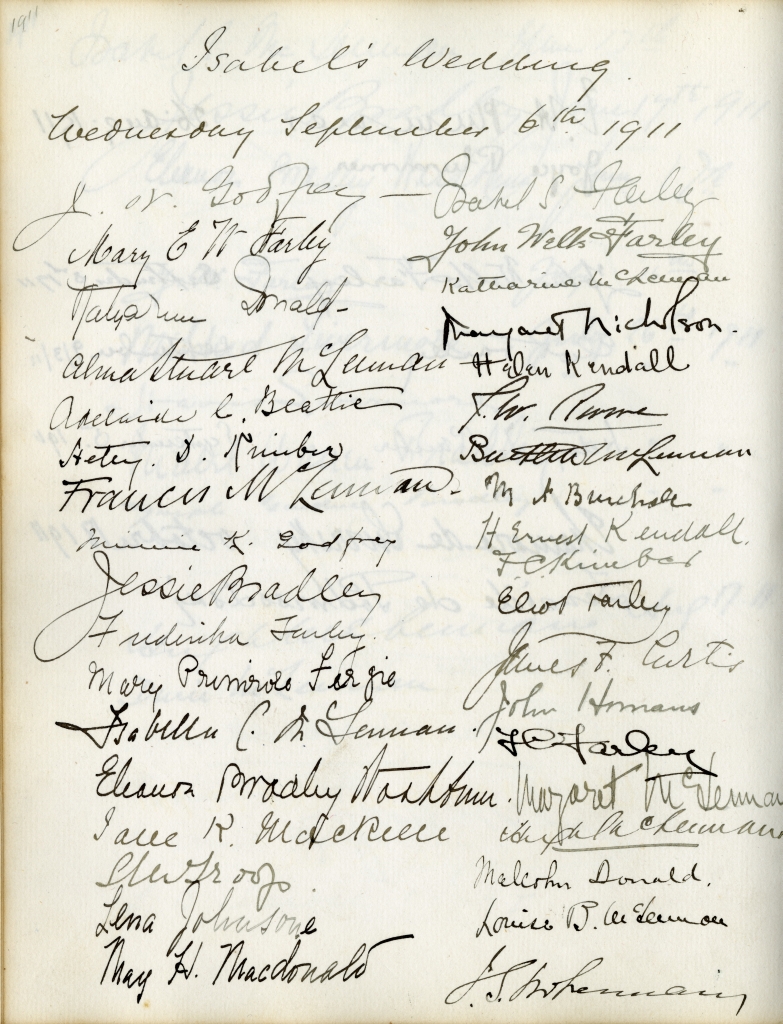 1911
Isabel's Wedding.
Wednesday September 6th 1911
J. W. Godfrey — Isabel S. Farley
Mary E W Farley
Katharine Donald
Alma Stuart McLennan
Adelaide C. Beattie
Hetty. D. Kimber
Francis McLennan
Minnie K. Godfrey
Jessie Bradley
Frederika Farley.
Mary Primrose Fergie
Isabella C. McLennan.
Eleanor Bradley Washburn.
Jane R. Mackenzie
Lena Johnstone
May H. Macdonald
John Wells Farley
Katharine McLennan
Margaret Nicholson.
Helen Kendall
J. W.
Bartlett McLennan
M A
H Ernest Kendall.
F C Kimber
Eliot Farley
James F. Curtis
John Homans
F C Farley
Margaret McLennan
Hugh McLennan
Malcolm Donald.
Louise B. McLennan
J. S.